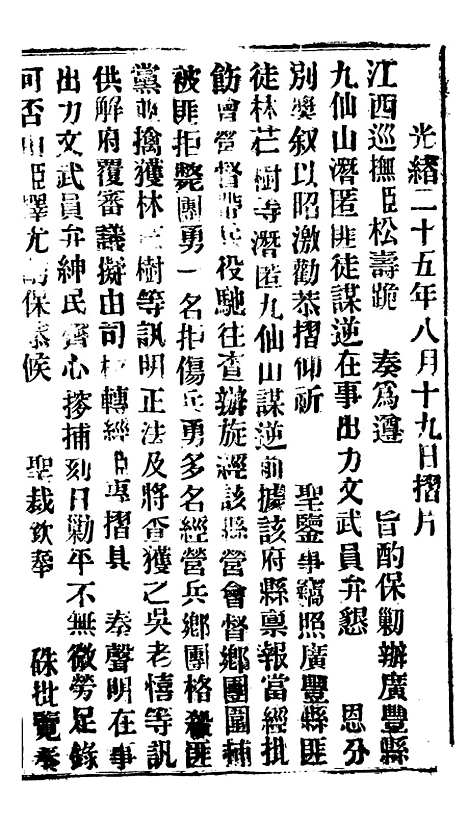 光緒二十五年八月十九日摺片
江西巡撫臣松壽跪 奏爲遵 旨酌保勦辦廣豐縣
九仙山潛匿匪徒謀逆在事出力文武員弁懇 恩分
別奬叙以昭激勸恭摺仰祈 聖鑒事竊照廣豐縣匪
徒林芒樹等潛匿九仙山謀逆前據該府縣禀報當經批
飭會營督帶兵役馳往查辦旋經該縣營會督鄉團圍捕
被匪拒斃團勇一名拒傷兵勇多名經營兵鄉團格殺匪
黨並擒獲林芒樹等訊明正法及將查獲之吳老僖等訊
供解府覆審議擬由司核轉經臣專摺具 奏聲明在事
出力文武員弁紳民齊心搜捕刻日勦平不無微勞足錄
可否由臣擇尤酌保恭候 聖裁欽奉 硃批覽奏